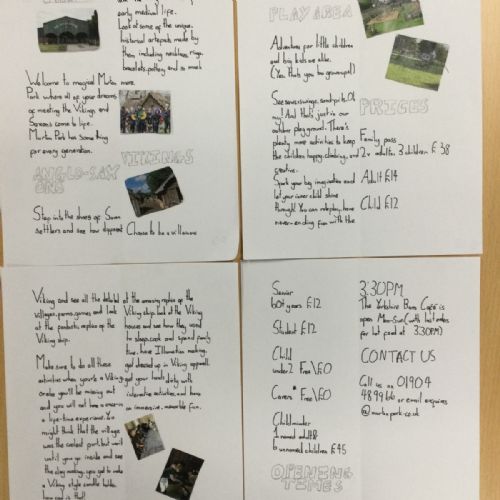 early medical life.
Look at some of the unique
historical artefacts made by
them, including necklaces, rings,
bracelets, pottery and so much
more.
Welcome to magical Murton
Park where all of your dreams
of meeting the Vikings and
Saxons come to life.
Murton Park has something
for every generation.
ANGLO-SAX
ONS
Step into the shoes of Saxon
settlers and see how different
VIKINGS
Choose to be a villainous
PLAY AREA
Adventures for little children
and big kids are alike.
(Yes that's you be grownups!)
See saws, swings, sand pits. Oh
my! And that's just in our
outdoor playground. There's
plenty more activities to keep
the children happy, climbing, and
creative.
Spark your big imagination and
let your inner child shine
through! You can roleplay, have
never-ending fun with the
PRICES
Family pass
2x adults, 3 children £38
Adult £14
Child £12
Viking and see all the detailed
villages, farms, games and look
at the fantastic replica of the
Viking ship.
Make sure to do all these
activities when you're a Viking
or else you'll be missing out
and you will not have a once-in
a life-time experience. You
might think that the village
was the coolest part, but wait
until you go inside and see
the clay making, you get to make
a Viking style candle holder,
how cool is that!
at the amazing replica of the
Viking ship. Look at the Viking
houses and see how they used
to sleep, cook and spend family
time. Have
making,
get dressed up in Viking apparel,
get your hands dirty with
interactive activities, and have
an immersive, memorable fun.
Senior
60+ years £12
Student £12
Child
under 2 Free\£0
Carers* Free\£0
Childminder
1 named adult &
6 unnamed children £45
OPENING
TIMES
3:30PM
The Yorkshire Barn Café is
open Mon-Sun (with last orders
for hot food at 3:30PM)
CONTACT US
Call us on 01904
489966 or email enquires
@murtonpark.co.uk